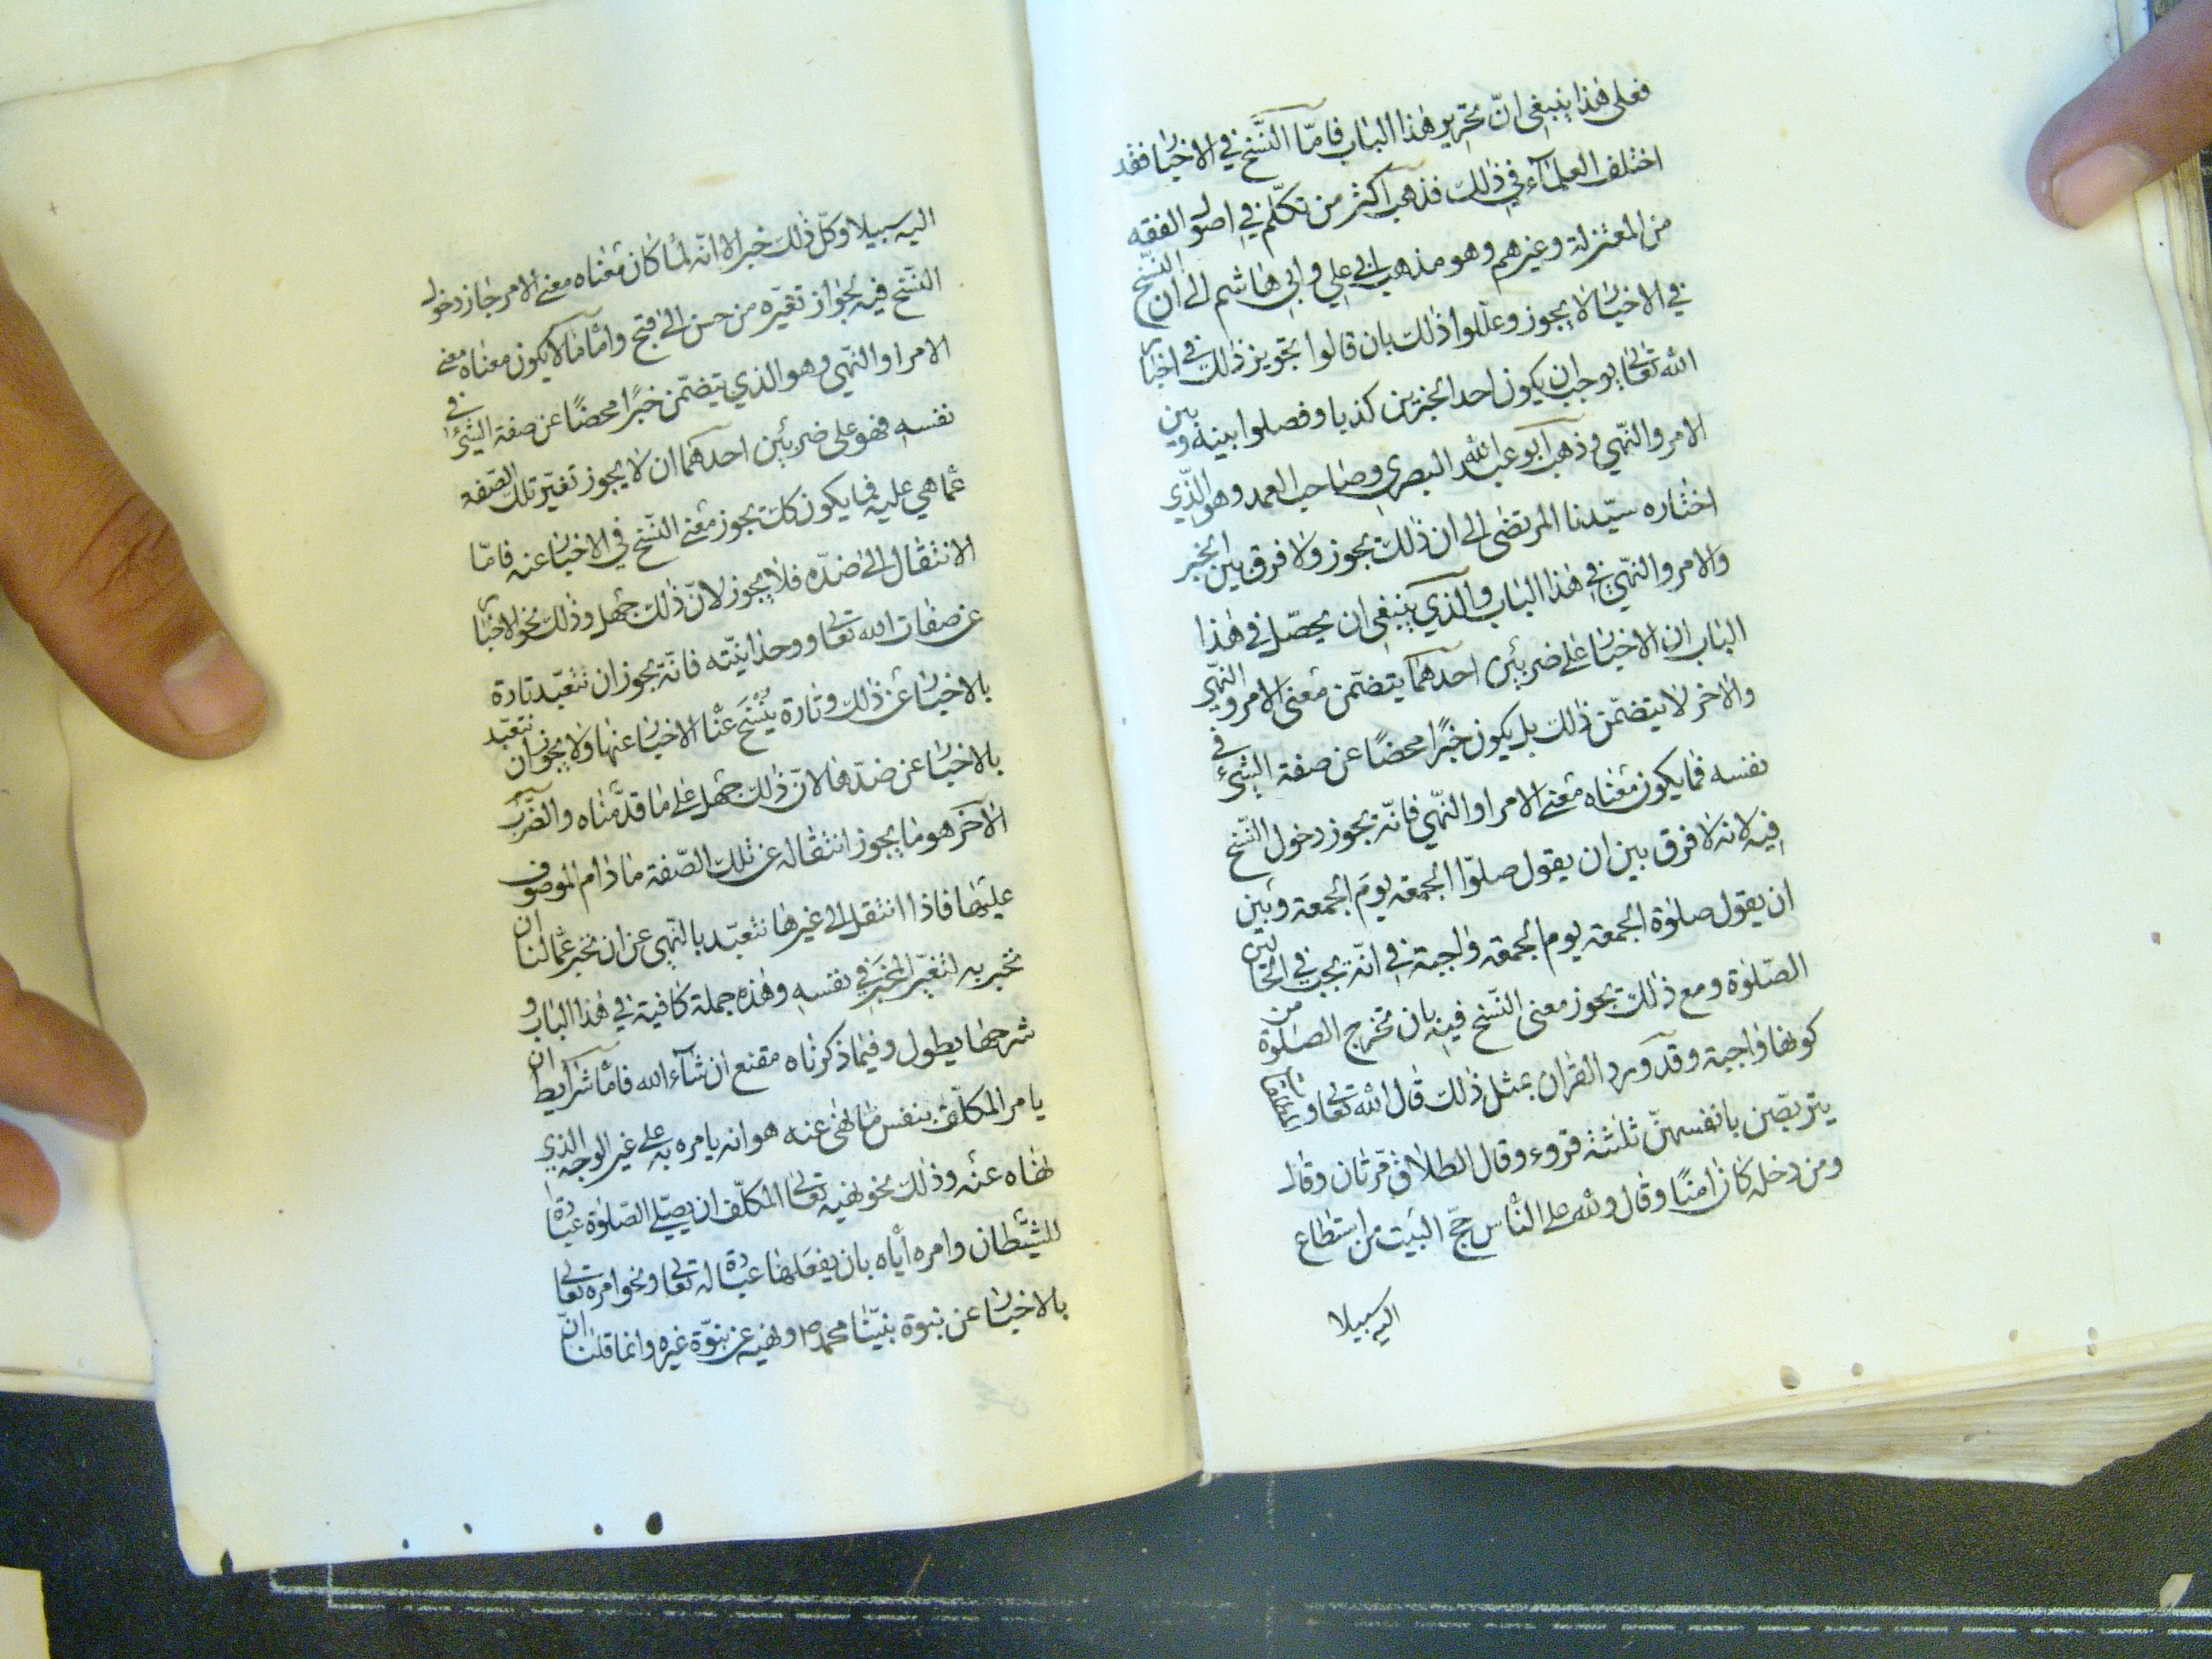 فعلى هذا ينبغي انّ تحرير هذا الباب فامّا النّسخ في الاخبار فقد
اختلف العلمآء في ذلك فذهب اكثر من تكلّم في اصول الفقه
من المعتزلة وغيرهم وهو مذهب ابي علي وابي هاشم الى ان النّسخ
في الاخبار لا يجوز وعلّلوا ذلك بان قالوا تجويز ذلك في اخبار
الله تعالى يوجب ان يكون احد الخبرين كذبا وفصلوا بينه وبين
الامر والنّهي وذهب ابو عبد الله البصري وصاحب العمد وهو الّذي
اختاره سيّدنا المرتضى الى ان ذلك يجوز ولا فرق بين الخبر
والامر والنّهي في هذا الباب والّذي ينبغي ان يحصّل في هذا
الباب ان الاخبار على ضربين احدهما يتضمّن معنى الامر والنّهي
والاخر لا يتضمّن ذلك بل يكون خبرًا محضًا عن صفة الشيء في
نفسه فما يكون معناه معنى الامر او النّهي فانّه يجوز دخول النّسخ
فيه لانه لا فرق بين ان يقول صلّوا الجمعة يوم الجمعة وبين
ان يقول صلوة الجمعة يوم الجمعة واجبة في انّه يجب في الحالين
الصّلوة ومع ذلك يجوز معنى النّسخ فيه بان تخرج الصلوة من
كونها واجبة وقد ورد القرآن بمثل ذلك قال الله تعالى و
يتربّصن بانفسهنّ ثلثة قروء وقال الطلاق مرّتان وقال
ومن دخله كان امنًا وقال ولله على النّاس حجّ البيت من استطاع
اليه سبيلا
اليه سبيلا وكلّ ذلك خبر الا انّه لمّا كان معناه معنى الامر جاز دخول
النّسخ فيه لجواز تغيّره من حسن الى قبح وامّا ما لا يكون معناه معنى
الامر او النّهي وهو الذي يتضمّن خبرًا محضًا عن صفة الشيء في
نفسه فهو على ضربين احدهما ان لا يجوز تغيّر تلك الصّفة
عمّا هي عليه فما يكون كك يجوز معنى النّسخ في الاخبار عنه فامّا
الانتقال الى ضدّه فلا يجوز لانّ ذلك جهل وذلك نحو الاخبار
عن صفات الله تعالى ووحدانيّته فانّه يجوز ان نتعبّد تارة
بالاخبار عن ذلك وتارة يُنسَخ عنّا الاخبار عنها ولا يجوز ان نتعبّد
بالاخبار عن ضدّها لانّ ذلك جهل على ما قدّمناه والضّرب
الآخر هو ما يجوز انتقاله عن تلك الصّفة ما دام الموصوف
عليها فاذا انتقل الى غيرها نتعبّد بالنّهي عن ان نخبر عمّا لنا ان
نخبر به لتغيّر المخبَر في نفسه وهذه جملة كافية في هذا الباب و
شرحها يطول وفيما ذكرناه مقنع ان شآء الله فامّا شرايط ان
يامر المكلّف بنفس ما نهى عنه هو انه يامره به على غير الوجه الذي
نهاه عنه وذلك نحو نهيه تعالى المكلّف ان يصلّي الصّلوة عبادة
للشيطان وامره ايّاه بان يفعلها عبادة له تعالى ونحو امره تعالى
بالاخبار عن نبوة نبيّنا محمد ص ونهيه عن نبوّة غيره وانما قلنا انّ